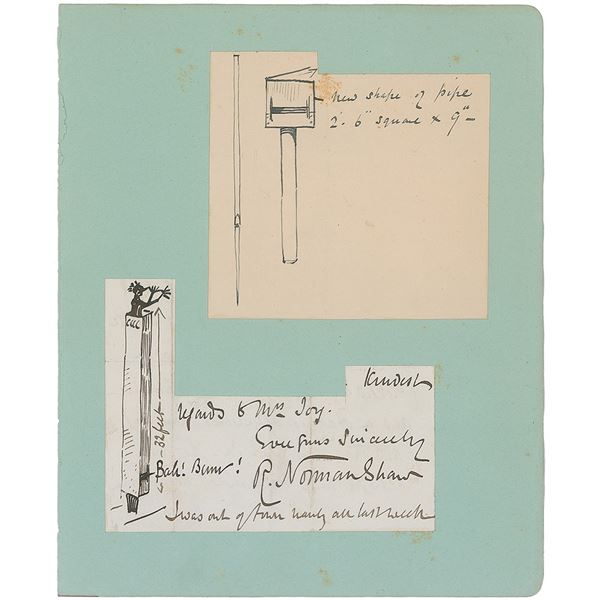 new shape of pipe
2.6" square x 9"
Kindest
regards to Mrs Joy.
Ever yours sincerely
R. Norman Shaw
32 feet
Bah!
I was out of town nearly all last week